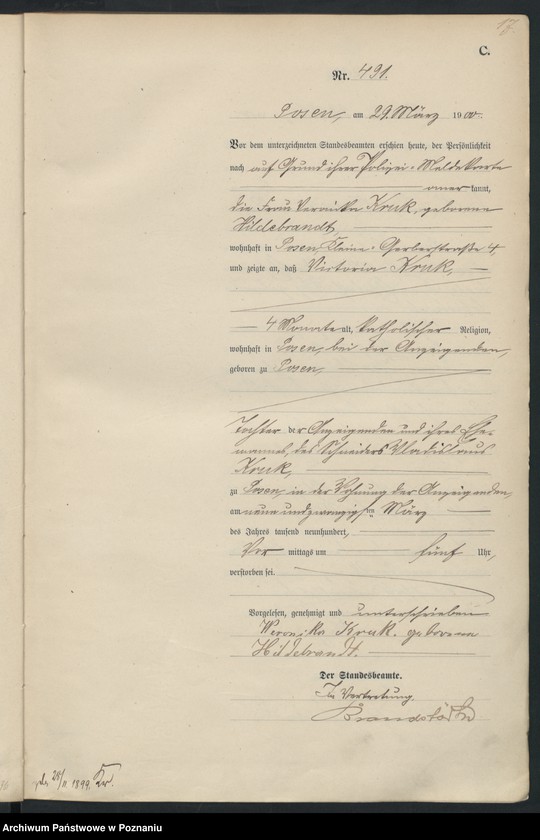 17.
C.
Nr. 491.
Posen, am 29. März 1900.
Vor dem unterzeichneten Standesbeamten erschien heute, der Persönlichkeit
nach auf Grund ihrer Polizei-Meldekarte
anerkannt,
die Frau Veronika Kruk, geborene
Hildebrandt,
wohnhaft in Posen, Kleine-Gerberstraße 4,
und zeigte an, daß Victoria Kruk,
4 Monate alt, katholischer Religion,
wohnhaft in Posen, bei der Anzeigenden,
geboren zu Posen,
Tochter der Anzeigenden und ihres Ehe-
mannes, des Schneiders Vladislaus
Kruk,
zu Posen, in der Wohnung der Anzeigenden,
am neunundzwanzigsten März
des Jahres tausend neunhundert,
Vor mittags um fünf Uhr,
verstorben sei.
Vorgelesen, genehmigt und unterschrieben
Weronika Kruk. geborene
Hildebrandt.
Der Standesbeamte.
In Vertretung.
28/11. 1899. Kr.
Archiwum Państwowe w Poznaniu